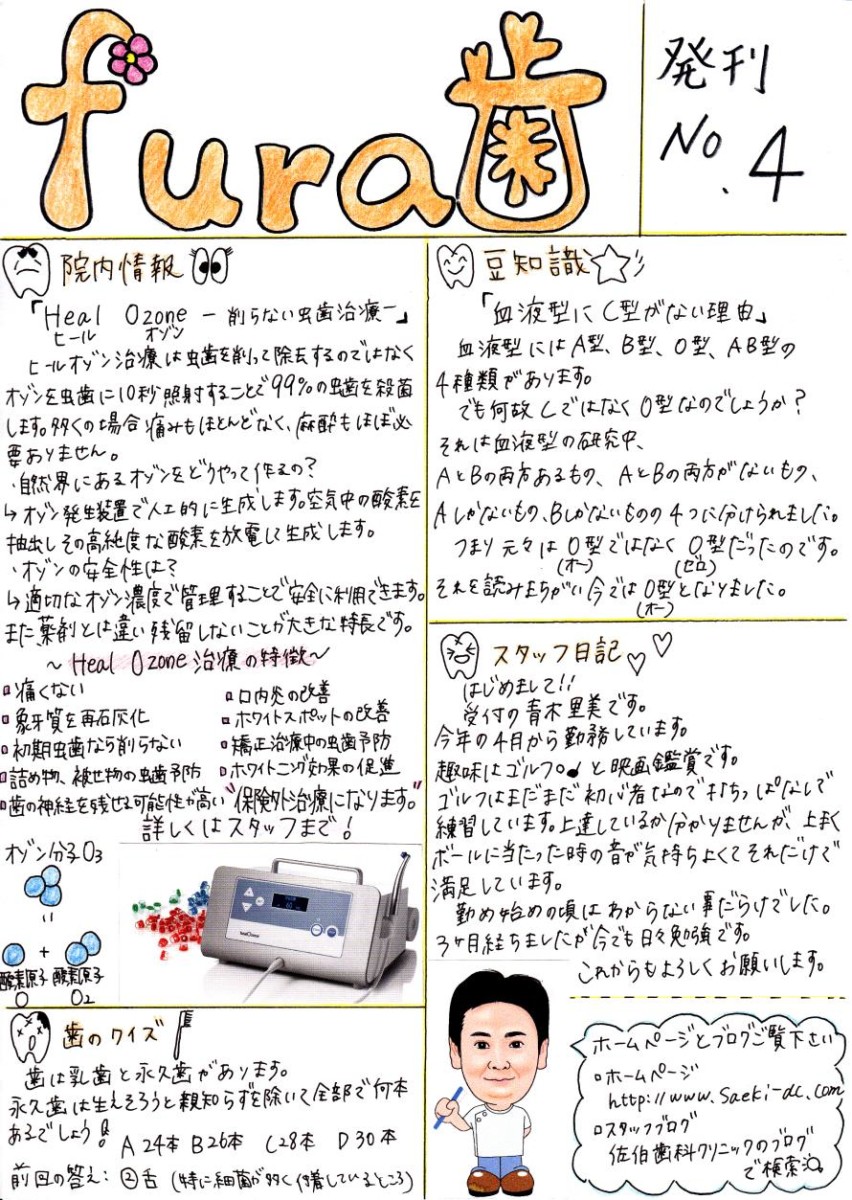 fura歯
発刊
No.4
院内情報
「Heal Ozone ー削らない虫歯治療ー」
ヒール オゾン
ヒールオゾン治療は虫歯を削って除去するのではなく
オゾンを虫歯に10秒照射することで99%の虫歯を殺菌
します。多くの場合痛みもほとんどなく、麻酔もほぼ必
要ありません。
・自然界にあるオゾンをどうやって作るの？
↳オゾン発生装置で人工的に生成します。空気中の酸素を
抽出しその高純度な酸素を放電して生成します。
・オゾンの安全性は？
↳適切なオゾン濃度で管理することで安全に利用できます。
また薬剤とは違い残留しないことが大きな特長です。
～Heal Ozone治療の特徴～
▫痛くない
▫象牙質を再石灰化
▫初期虫歯なら削らない
▫詰め物、被せ物の虫歯予防
▫歯の神経を残せる可能性が高い
▫口内炎の改善
▫ホワイトスポットの改善
▫矯正治療中の虫歯予防
▫ホワイトニング効果の促進
"保険外治療になります。"
詳しくはスタッフまで！
オゾン分子O3
=
+
酸素原子 酸素原子
O O2
歯のクイズ
歯は乳歯と永久歯があります。
永久歯は生えそろうと親知らずを除いて全部で何本
あるでしょう!
A24本 B26本 C28本 D30本
前回の答え：②舌（特に細菌が多く付着しているところ）
豆知識
「血液型にC型がない理由」
血液型にはA型、B型、O型、AB型の
4種類があります。
でも何故CではなくO型なのでしょうか？
それは血液型の研究中、
AとBの両方あるもの、AとBの両方がないもの、
Aしかないもの、Bしかないものの4つに分けられました。
つまり元々はO型ではなく0型だったのです。
(オー) (ゼロ)
それを読みまちがい今ではO型となりました。
(オー)
スタッフ日記
はじめまして!!
受付の青木里美です。
今年の4月から勤務しています。
趣味はゴルフと映画鑑賞です。
ゴルフはまだまだ初心者なので打ちっぱなしで
練習しています。上達しているか分かりませんが、上手く
ボールに当たった時の音が気持ちよくてそれだけで
満足しています。
勤め始めの頃はわからない事だらけでした。
3ヶ月経ちましたが今でも日々勉強です。
これからもよろしくお願いします。
ホームページとブログご覧下さい
▫ホームページ
http://www.saeki-dc.com
▫スタッフブログ
佐伯歯科クリニックのブログ
で検索